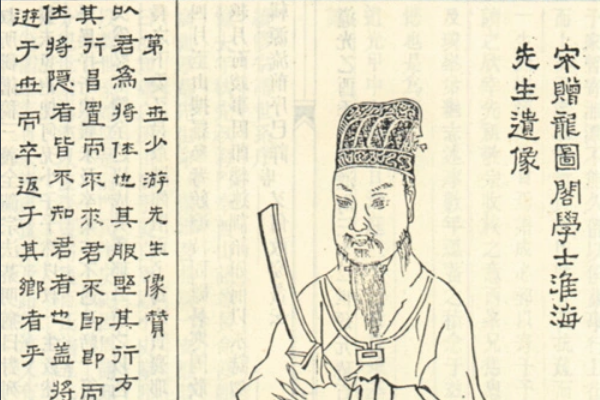 宋贈龍圖閣學士淮海
先生遺像
第一世少游先生像贊
以君為將仕也其服埜其行方
其行昌置而不求君不即即而
仕將隱者皆不知君者也蓋將
遊于世而卒返于其鄉者乎